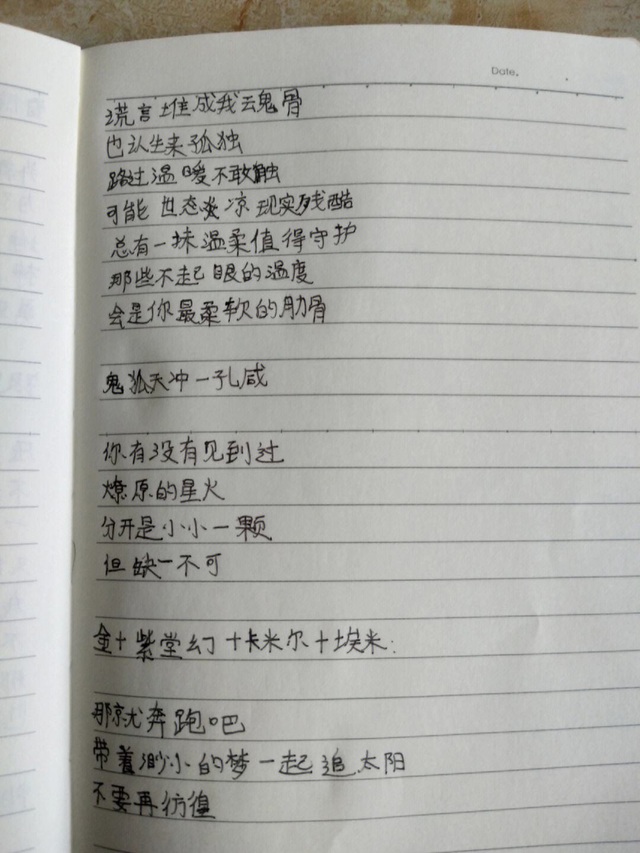 Date.
谎言堆成我云鬼骨
也认生来孤独
路过温暖不敢触
可能世态炎凉现实残酷
总有一抹温柔值得守护
那些不起眼的温度
会是你最柔软的肋骨
鬼狐天冲一孔威
你有没有见到过
燎原的星火
分开是小小一颗
但缺一不可
金+紫堂幻+卡米尔+埃米:
那就奔跑吧
带着渺小的梦一起追太阳
不要再彷徨